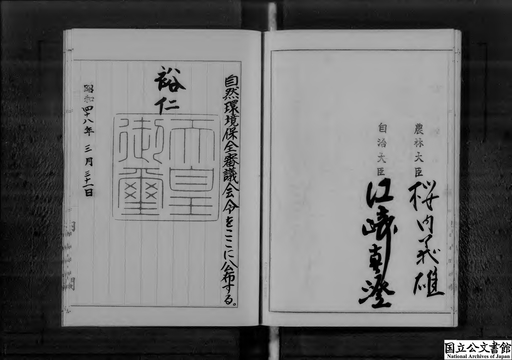 自然環境保全審議会令をここに公布する。
裕仁
天皇
御璽
昭和四十八年 三月 三十一日
農林大臣 桜内義雄
自治大臣 江崎真澄
国立公文書館
National Archives of Japan